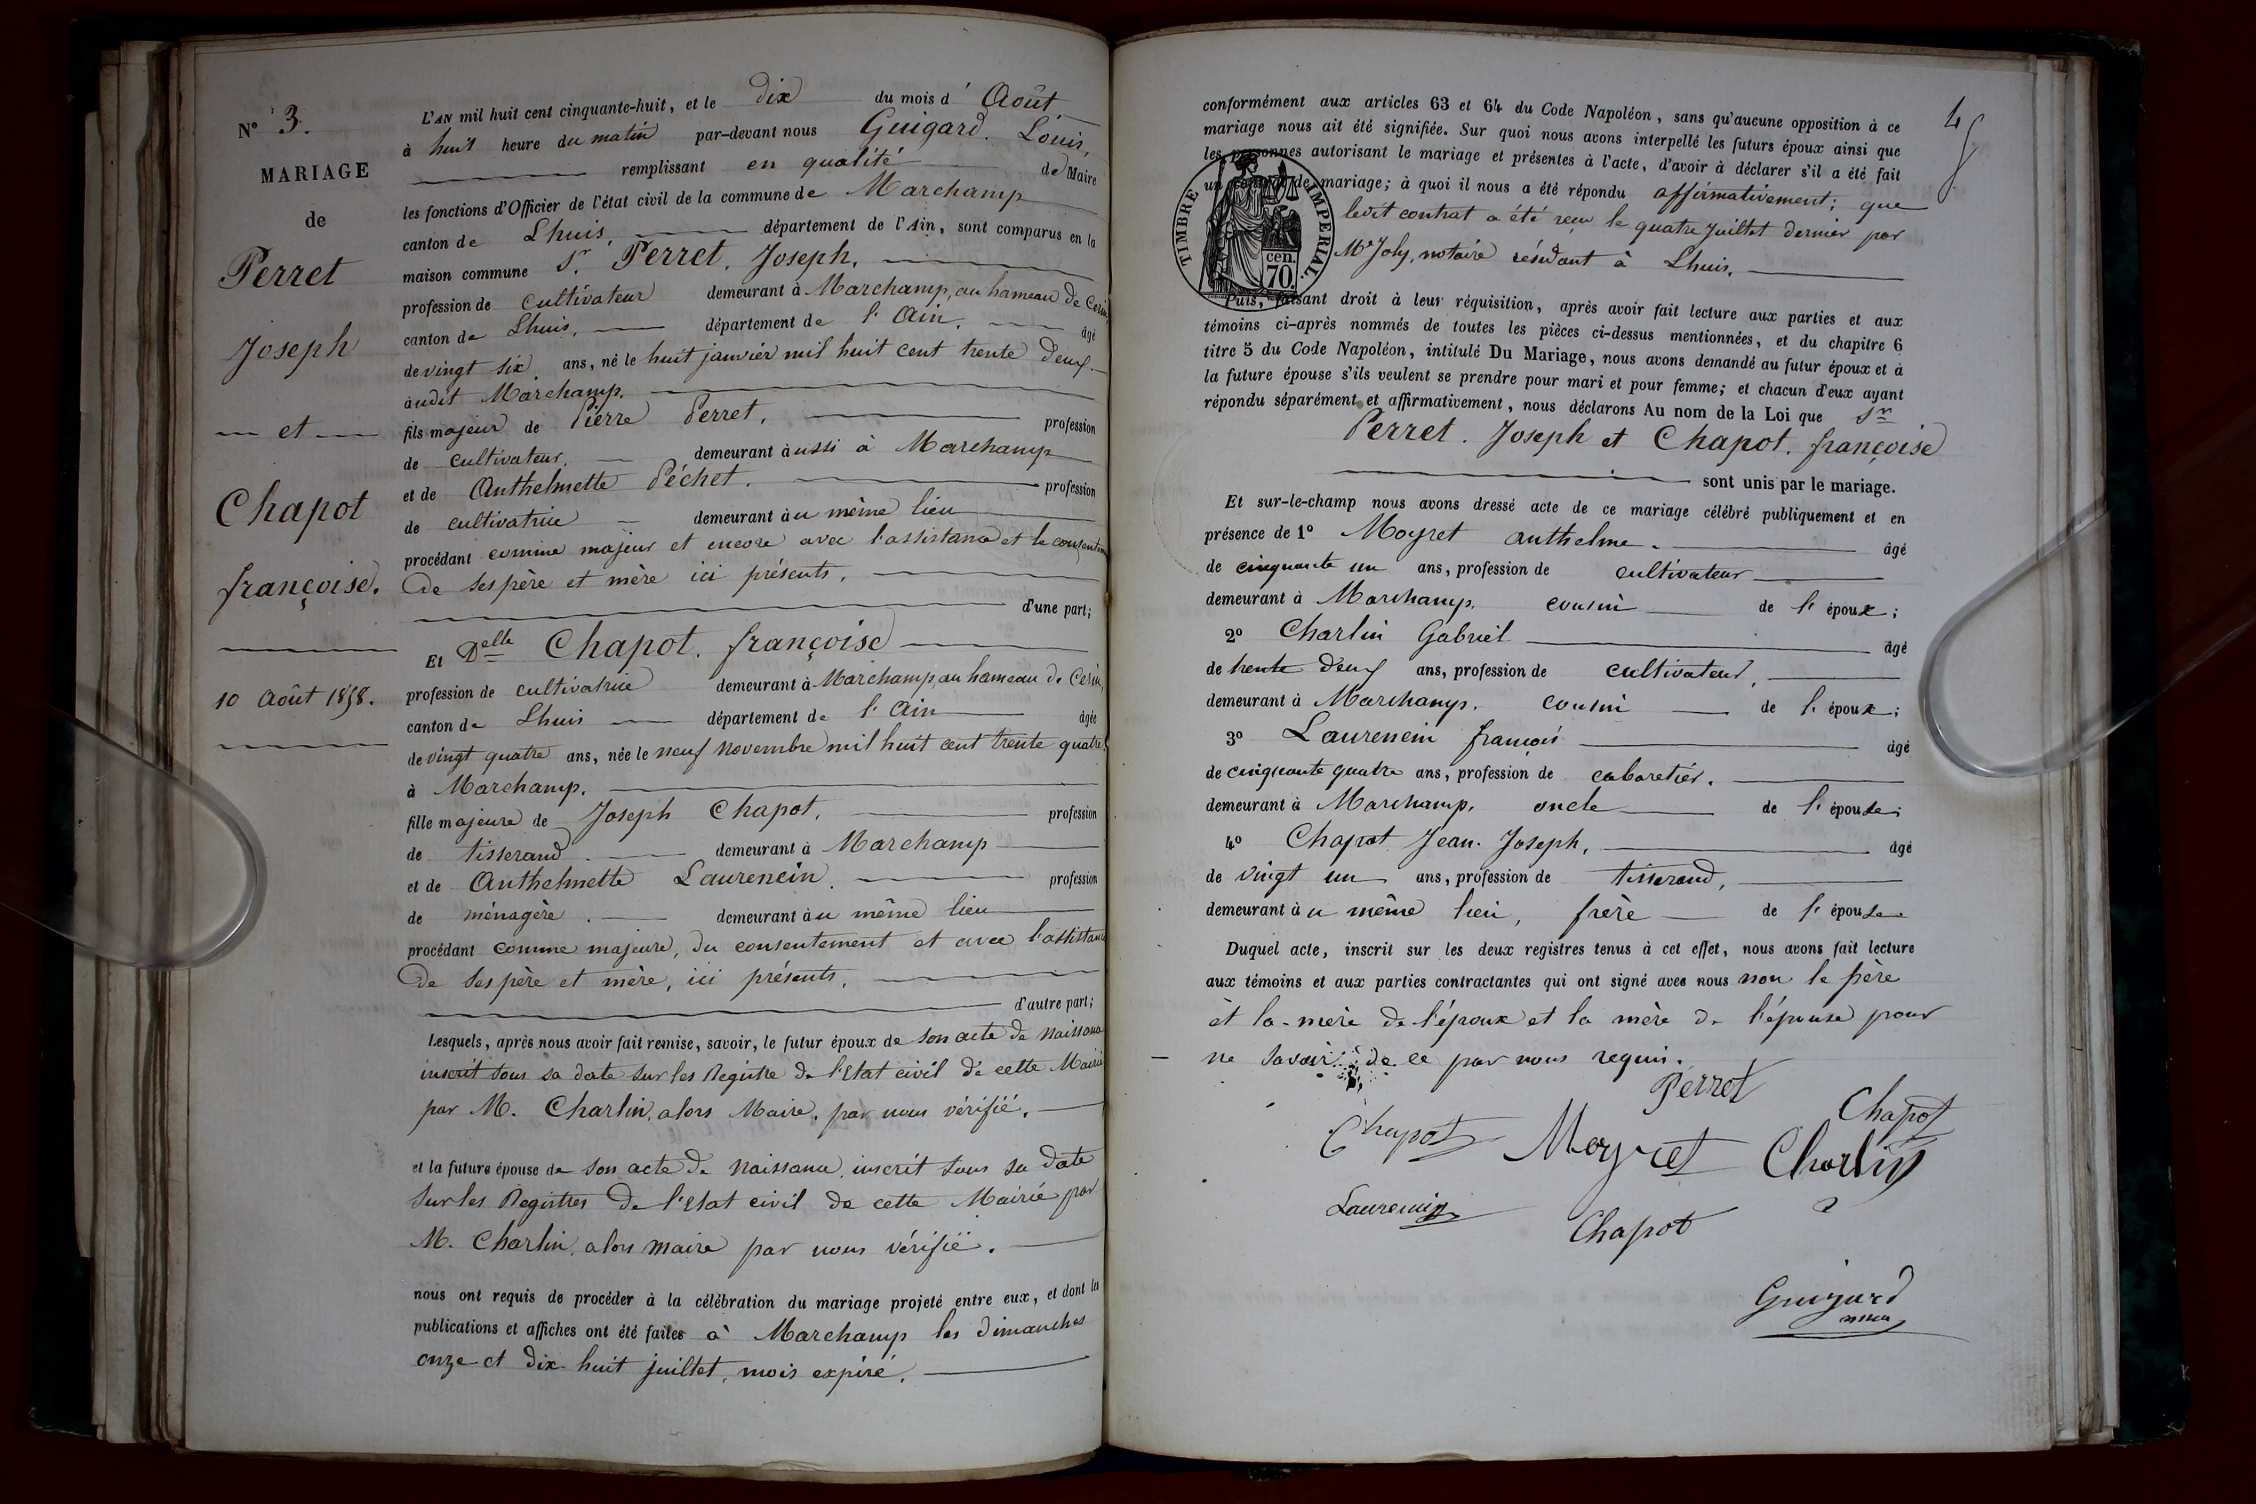 N° 3.
MARIAGE
de
Perret
Joseph
et
Chapot
françoise.
10 Août 1858.
L'AN mil huit cent cinquante-huit, et le dix du mois d' Août
à huit heure du matin par-devant nous Guigard. Louis,
remplissant en qualité de Maire
les fonctions d'Officier de l'état civil de la commune de Marchamp
canton de Lhuis, département de l'Ain, sont comparus en la
maison commune Sr. Perret, Joseph,
profession de cultivateur demeurant à Marchamp, au hameau de Cerin,
canton de Lhuis, département de l'Ain, âgé
de vingt six ans, né le huit janvier mil huit cent trente deux
audit Marchamp.
fils majeur de Pierre Perret, profession
de cultivateur, demeurant aussi à Marchamp
et de Anthelmette Péchet, profession
de cultivatrice demeurant au même lieu
procédant comme majeur et encore avec l'assistance et le consentement
de ses père et mère ici présents,
d'une part;
Et Delle Chapot. françoise
profession de cultivatrice demeurant à Marchamp, au hameau de Cerin,
canton de Lhuis département de l'Ain âgée
de vingt quatre ans, née le neuf novembre mil huit cent trente quatre
à Marchamp.
fille majeure de Joseph Chapot, profession
de tisserand demeurant à Marchamp
et de Anthelmette Laurencin profession
de ménagère demeurant au même lieu
procédant comme majeure, du consentement et avec l'assistance
de ses père et mère, ici présents,
d'autre part;
Lesquels, après nous avoir fait remise, savoir, le futur époux de son acte de naissance
inscrit sous sa date sur les Registre de l'Etat civil de cette Mairie
par M. Charlin, alors Maire, par nous vérifié.
et la future épouse de son acte de naissance inscrit sous sa date
sur les Registres de l'Etat civil de cette Mairie par
M. Charlin, alors maire par nous vérifié.
nous ont requis de procéder à la célébration du mariage projeté entre eux, et dont les
publications et affiches ont été faites à Marchamp les dimanches
onze et dix-huit juillet, mois expiré.
conformément aux articles 63 et 64 du Code Napoléon, sans qu'aucune opposition à ce
mariage nous ait été signifiée. Sur quoi nous avons interpellé les futurs époux ainsi que
les personnes autorisant le mariage et présentes à l'acte, d'avoir à déclarer s'il a été fait
un contrat de mariage; à quoi il nous a été répondu affirmativement; que
ledit contrat a été reçu le quatre juillet dernier par
Me Joly, notaire résidant à Lhuis.
TIMBRE IMPERIAL.
cen.
70.
Puis, faisant droit à leur réquisition, après avoir fait lecture aux parties et aux
témoins ci-après nommés de toutes les pièces ci-dessus mentionnées, et du chapitre 6
titre 5 du Code Napoléon, intitulé Du Mariage, nous avons demandé au futur époux et à
la future épouse s'ils veulent se prendre pour mari et pour femme; et chacun d'eux ayant
répondu séparément et affirmativement, nous déclarons Au nom de la Loi que Sr
Perret. Joseph et Chapot. françoise
sont unis par le mariage.
Et sur-le-champ nous avons dressé acte de ce mariage célébré publiquement et en
présence de 1° Moyret anthelme. âgé
de cinquante un ans, profession de cultivateur
demeurant à Marchamp. cousin de l'époux;
2° Charlin Gabriel âgé
de trente deux ans, profession de cultivateur,
demeurant à Marchamp. cousin de l'époux;
3° Laurencin françois âgé
de cinquante quatre ans, profession de cabaretier.
demeurant à Marchamp. oncle de l'épouse;
4° Chapot Jean-Joseph, âgé
de vingt un ans, profession de tisserand,
demeurant au même lieu, frère de l'épouse
Duquel acte, inscrit sur les deux registres tenus à cet effet, nous avons fait lecture
aux témoins et aux parties contractantes qui ont signé avec nous non le père
et la mère de l'époux et la mère de l'épouse pour
ne savoir de ce par nous requis.
Perret
Chapot
Chapot Moyret Charlin
Laurencin
Chapot
Guigard